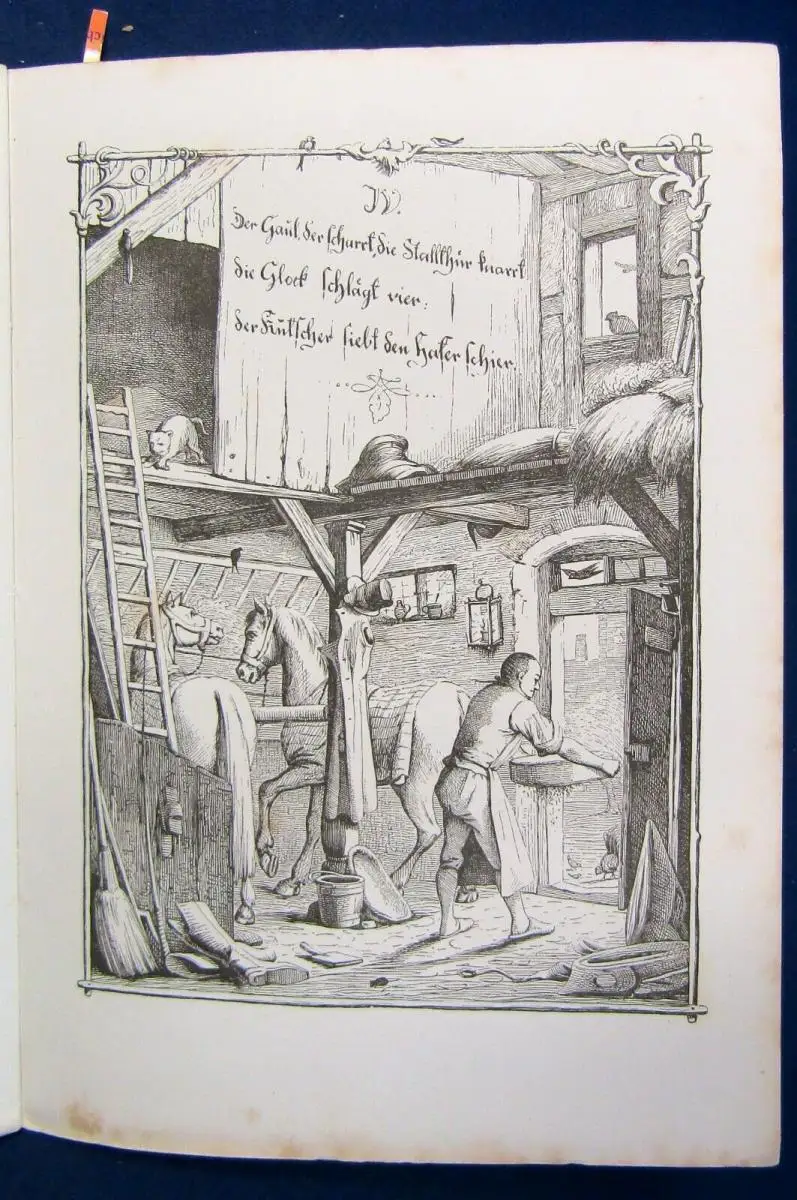 IV.
Der Gaul, der scharrt, die Stallthür knarrt
die Glock schlägt vier:
der Kutscher siebt den Hafer schier.